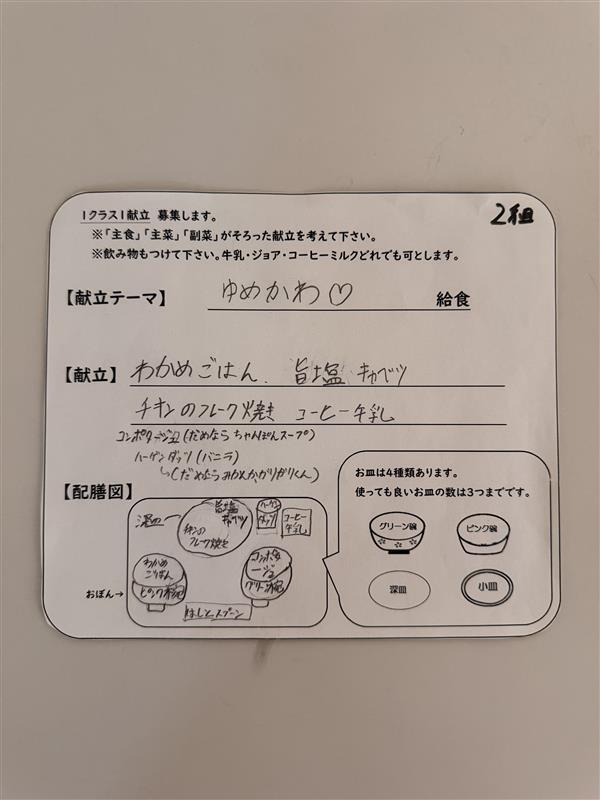 1クラス1献立 募集します。
2組
※「主食」「主菜」「副菜」がそろった献立を考えて下さい。
※飲み物もつけて下さい。牛乳・ジョア・コーヒーミルクどれでも可とします。
【献立テーマ】 ゆめかわ♡ 給食
【献立】 わかめごはん. 旨塩 キャベツ
チキンのフレーク焼き コーヒー牛乳
(だめなら ちゃんぽんスープ)
ハーゲンダッツ (バニラ)
(だめならみかんかガリガリくん)
【配膳図】
深皿
旨塩
キャベツ
チキンの
フレーク焼き
ハーゲン
ダッツ
コーヒー
牛乳
わかめ
ごはん
ピンク碗
コンポタ
ージュ
グリーン碗
おぼん→
はしとスプーン
お皿は4種類あります。
使っても良いお皿の数は3つまでです。
グリーン碗
ピンク碗
深皿
小皿